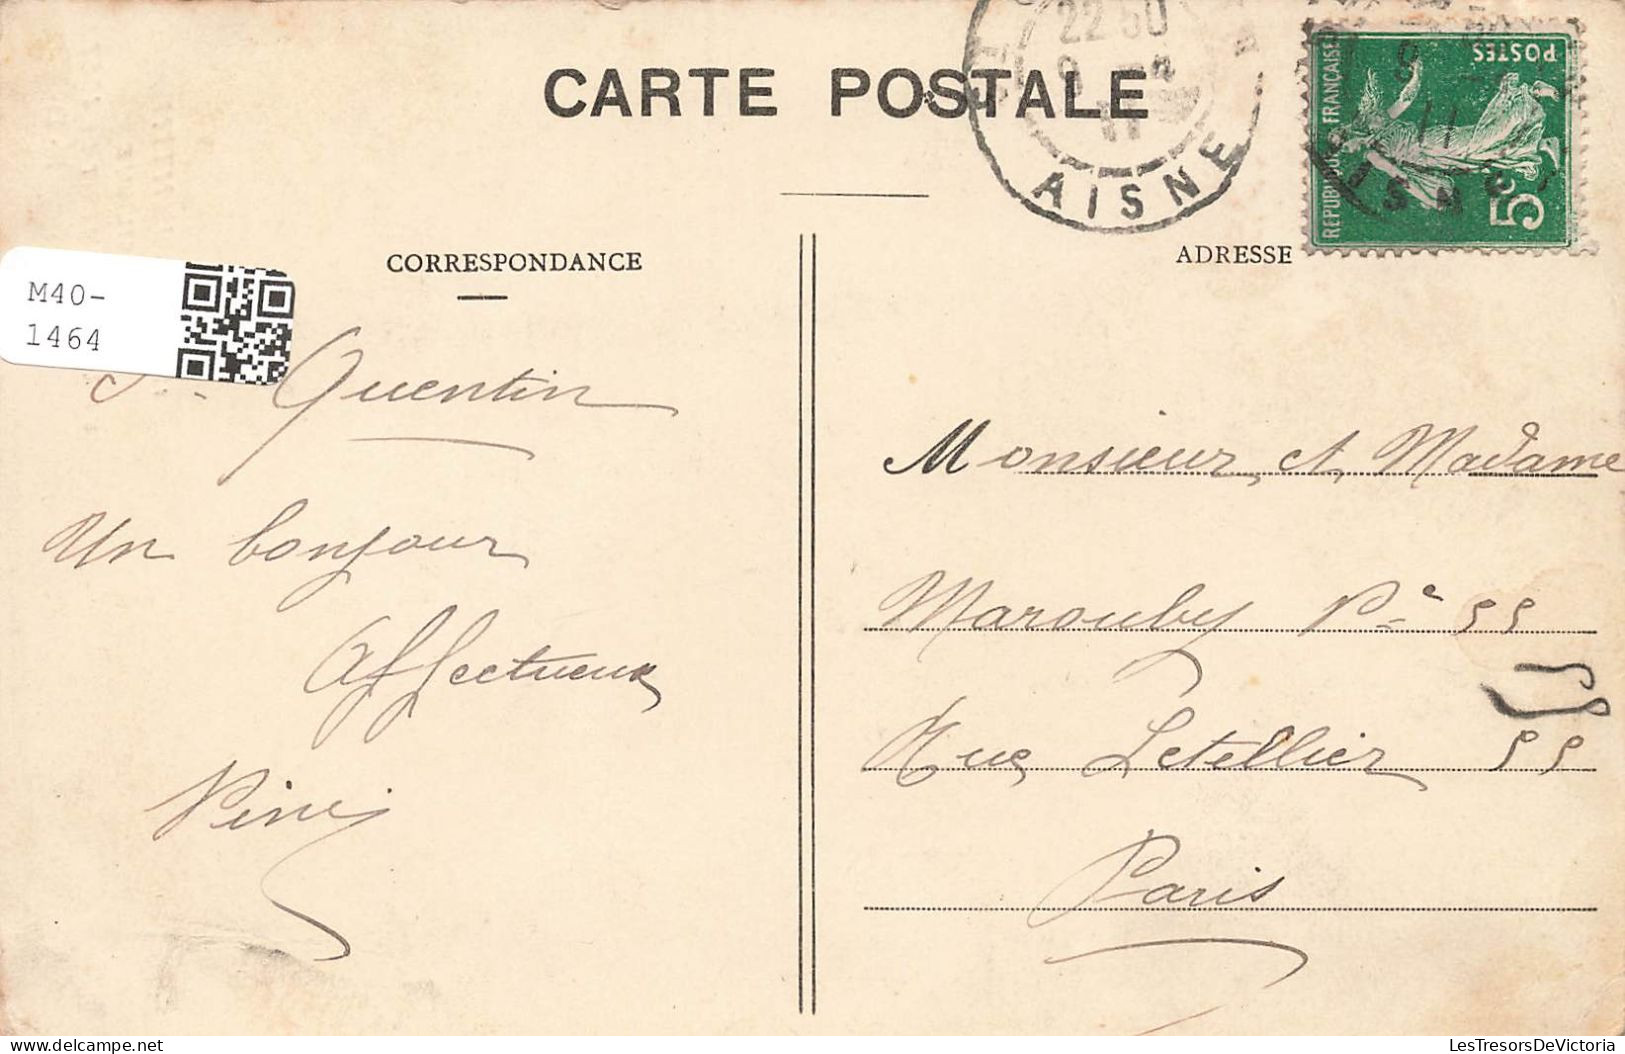 CARTE POSTALE
22 50
9
11
AISNE
REPUBLIQUE FRANÇAISE
POSTES
5c
CORRESPONDANCE
ADRESSE
M40-
1464
St. Quentin
Un bonjour
Affectueux
Monsieur et Madame
Marouby Pe 55
Rue Letellier 55
Paris
Delcampe.net
LesTresorsDeVictoria